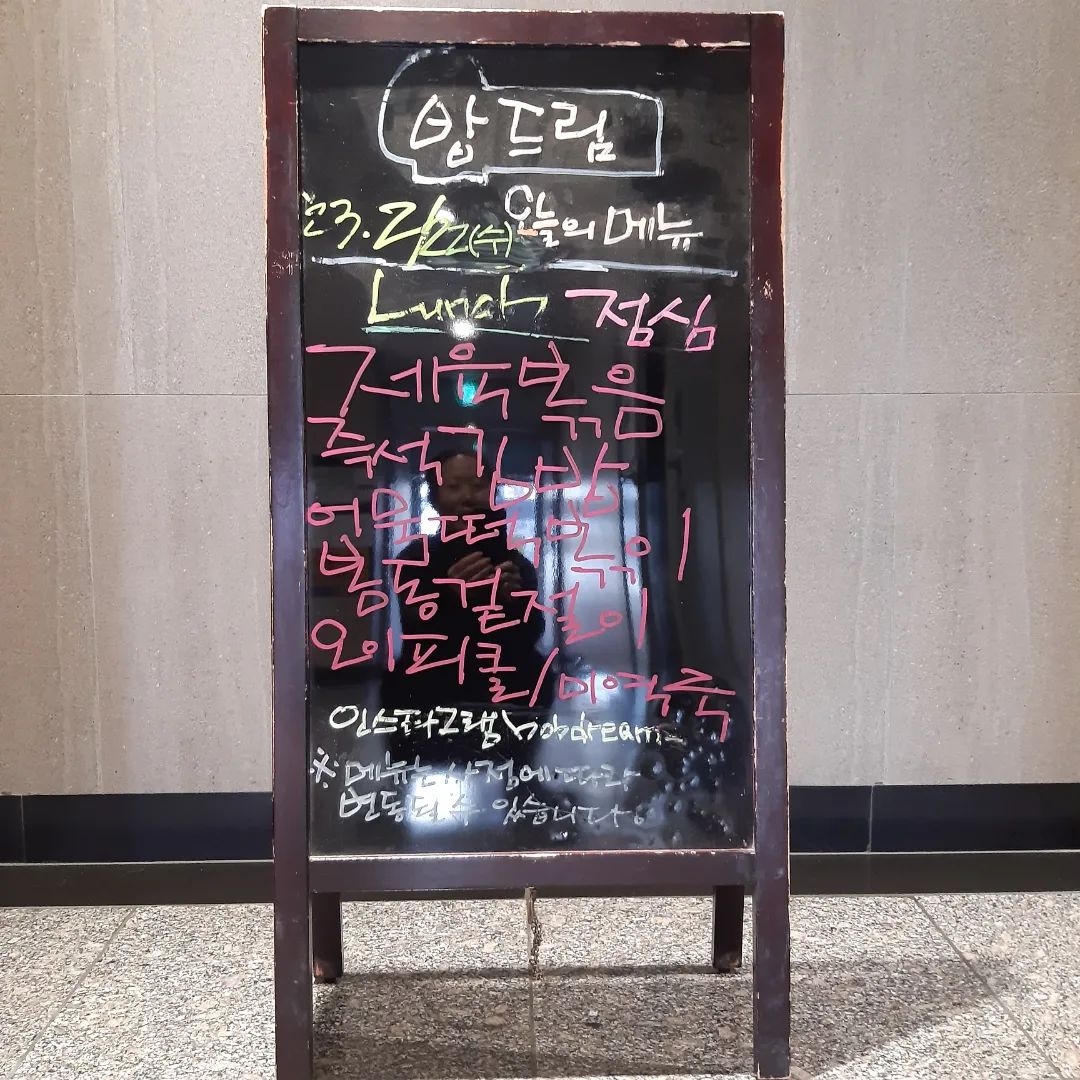 밥드림
23. 2/22(수) 오늘의 메뉴
Lunch 점심
제육볶음
즉석김밥
어묵떡볶이
봄동겉절이
오이피클/미역국
인스타그램 bobdream_
※ 메뉴는 사정에 따라
변동될 수 있습니다.